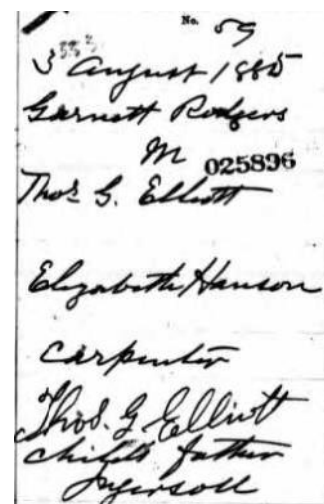 No. 59
333
3 August 1885
Garnett Rodgers
M 025896
Thos G. Elliott
Elizabeth Hanson
Carpenter
Thos. G Elliott
child's father
Ingersoll